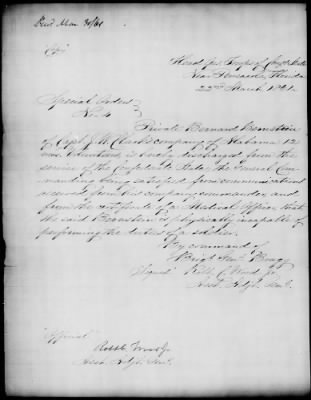 Head Qrs Troops of Confed States
Near Pensacola, Florida
22nd March 1861.
Special Orders
No. 4
Private Bernard Bernstein
of Capt. J. W. Clark's company of Alabama 12
mos. Volunteers is hereby discharged from the
service of the Confederate States, the General Com-
manding being satisfied from communications
received from his company commander, and
from the certificate of a Medical Officer that
the said Bernstein is physically incapable of
performing the duties of a soldier.
By command of
Brig Genl Bragg
Signed Robt C. Wood Jr.
Asst. Adjt. Genl.
Official
Robt C Wood Jr.
Asst. Adjt. Genl.